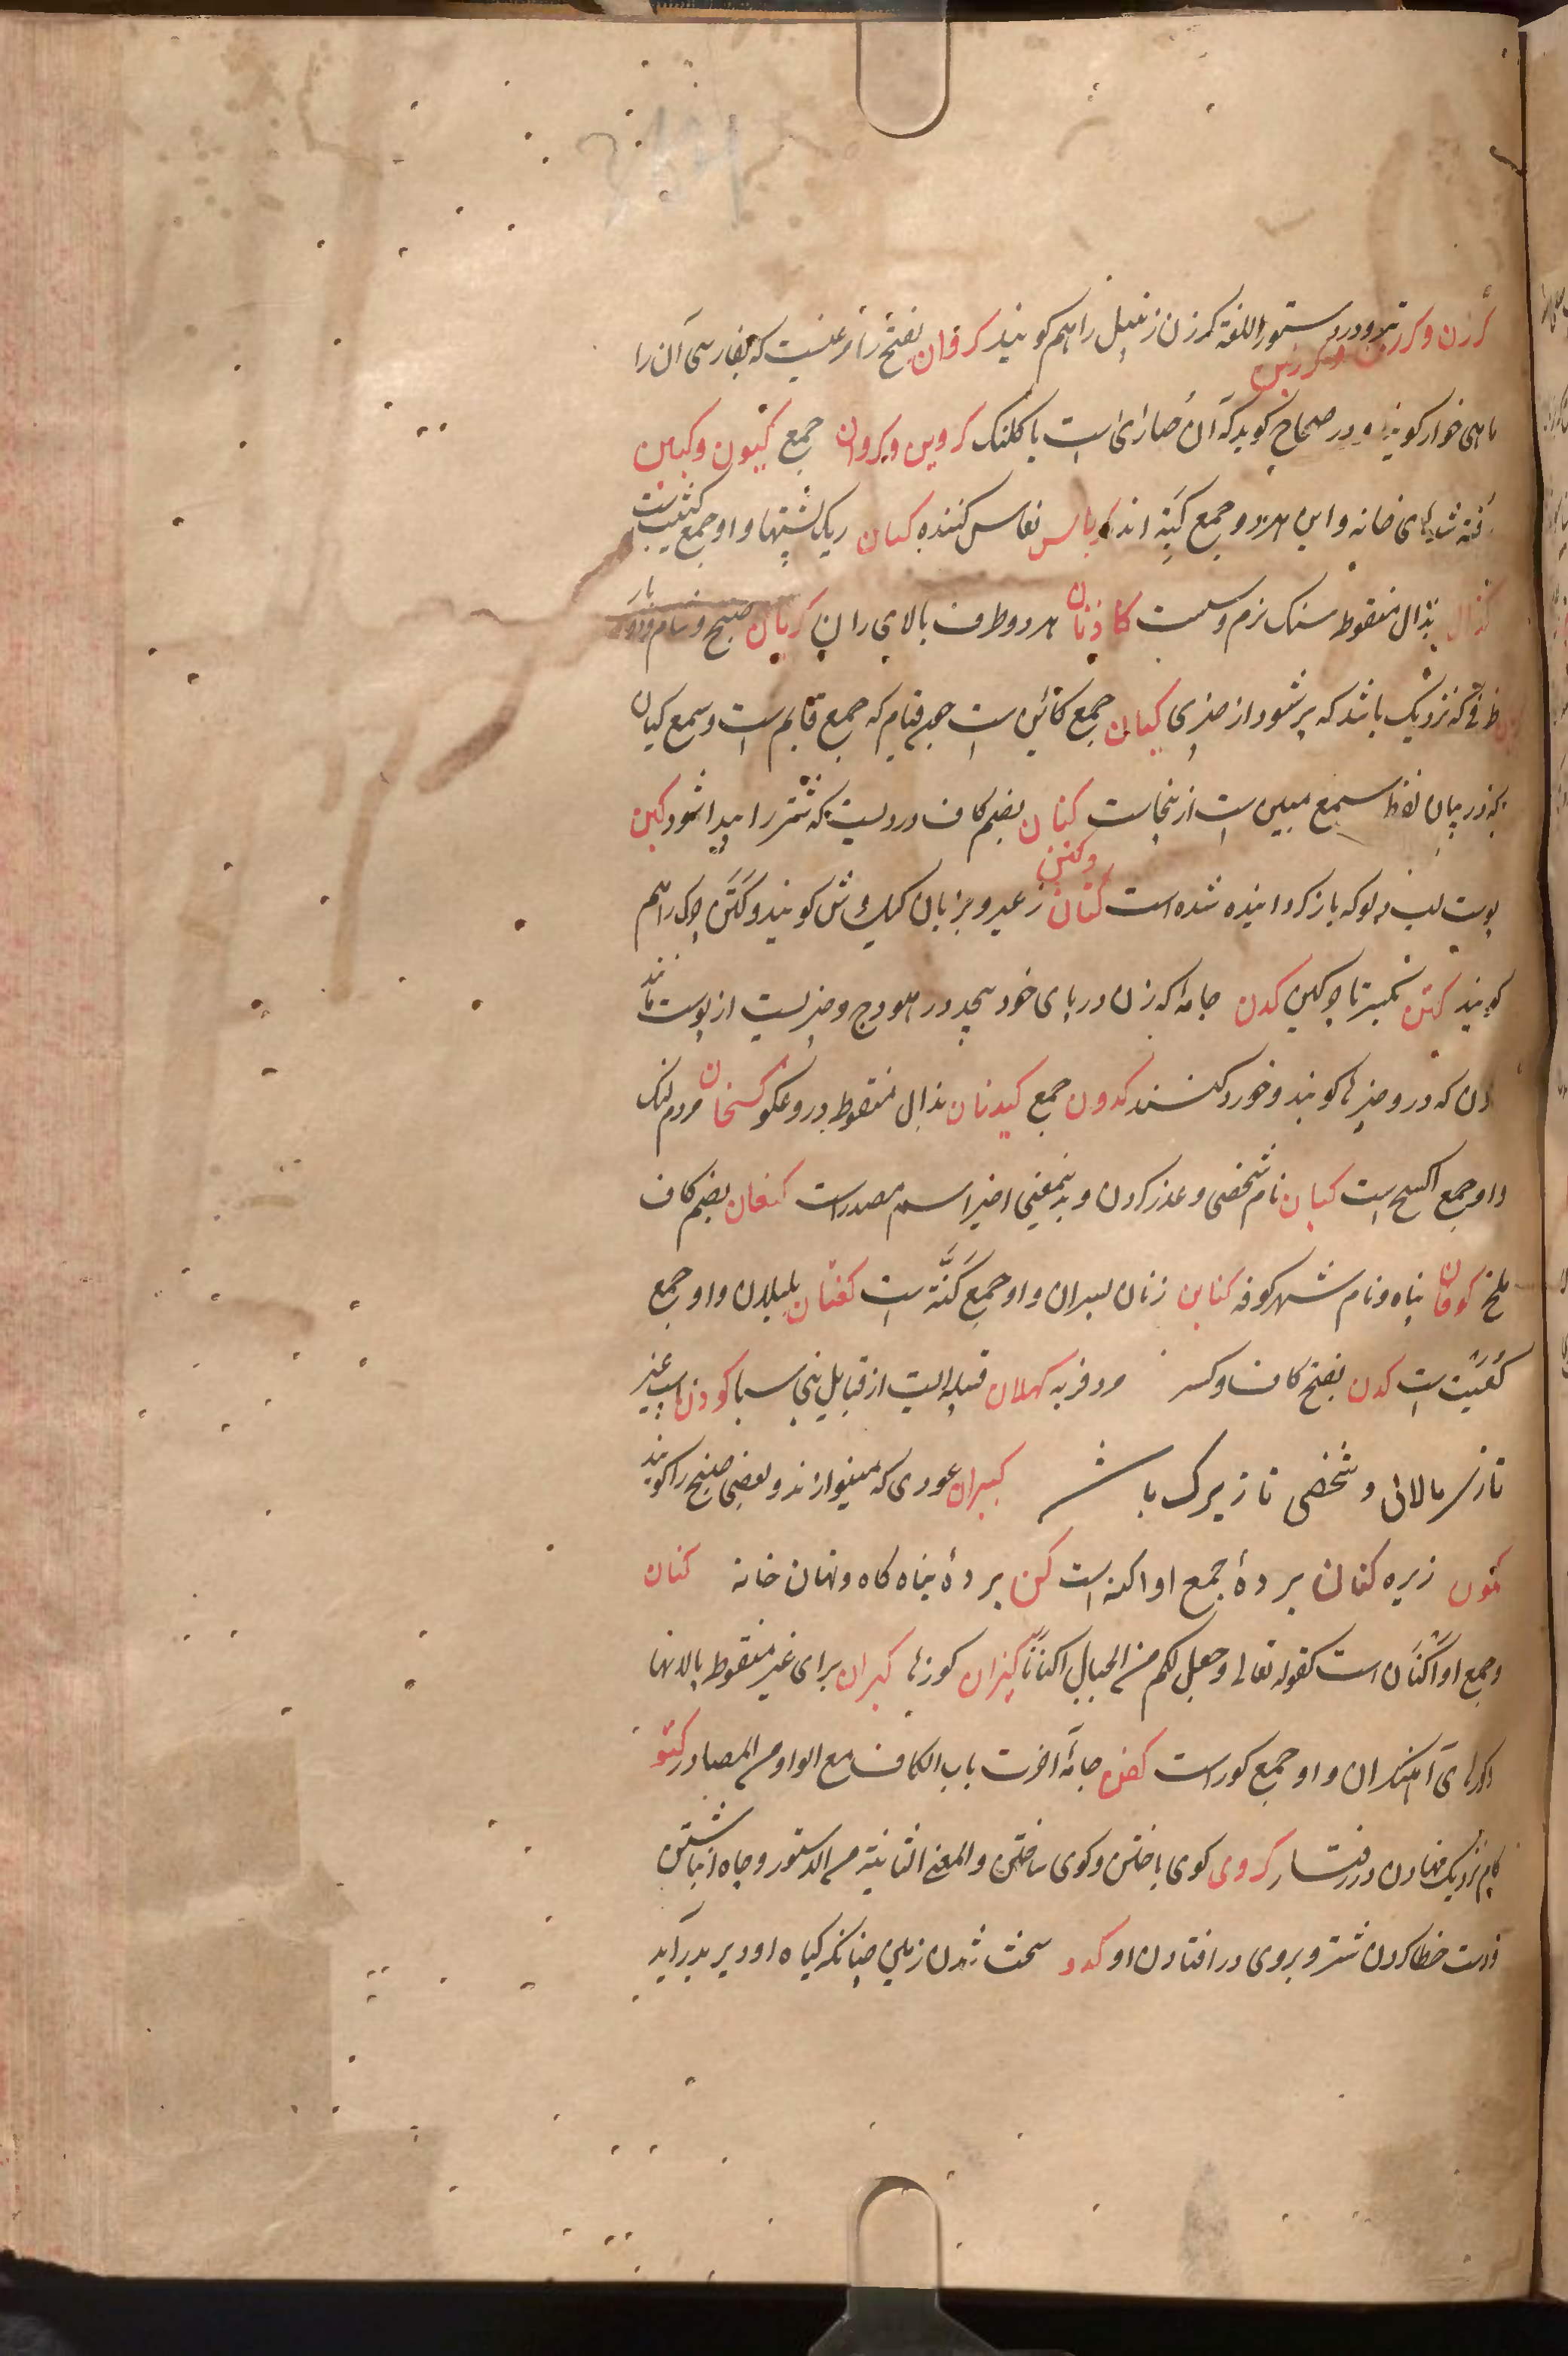 کرزن و کرزین و کرزین تبر و در دستور اللغة کرزن زنبیل را هم کویند کروان بفتح را مرغیست که بفارسی آن را
ماهی خوار کویند و در صحاح کوید که آن حباری است یا کلنک کروین و کروان جمع کبون و کبین
شبهای خانه و این هر دو جمع کبة اند کرباس نفاس کننده کثبان ریک پشتها و او جمع کثیب است
کذان بذال منقوط سنک نرم و سست کاذتان هر دو طرف بالای ران کربان صبح و شام و دو بار
ظرفی که نزدیک باشد که پر شود از چیزی کیان جمع کائن است چون قیام که جمع قایم است و سمع کیان
که در بیان لفظ سمع مبین است ازینجاست کنان بضم کاف دردیست که شتر را پیدا شود کبن
پوست لب دلو که باز کردانیده شده است کتان و کتن زغیر و بزبان کتن چرک را هم
کویند کتن کمیزتا چرکین کدن جامه که زن در پای خود پیچد در هودج و چیزیست از پوست مانند
که در و چیزها کوبند و خورد کنند کدون جمع کیذبان بذال منقوط دروغکو کسحان مردم لنک
و او جمع اکسح است کیان نام شخصی و عذر کردن و بدینمعنی اخیر اسم مصدر است کنعان بضم کاف
ملخ کوفان پناه و نام شهر کوفه کناین زنان پسران و او جمع کنة است کعتان بلبلان و او جمع
کعیت است کدن بفتح کاف و کسر مرد فربه کهلان قبیله ایست از قبایل بنی سبا کودن اسب غیر
تازی پالانی و شخصی نا زیرک باشد کبران عودی که مینوازند و بعضی صنج را کویند
کمون زیره کنان بردۀ جمع او اکنه است کن بردۀ پناه کاه و نهان خانه کنان
و جمع او اکنان است کقوله تعالی و جعل لکم من الجبال اکنانا کیزان کوزها کیران برای غیر منقوط پالانها
آهنکران و او جمع کور است کفن جامۀ آخرت باب الکاف مع الواو من المصادر کتو
کام نزدیک نهادن در رفتار کروی کوی باختن و کوی ساختن و المعنی الثانیة من الدستور و چاه انباشتن
و دست خطا کردن شتر و بروی در افتادن او کدو سخت شدن زمین چنانکه کیاه او دیر بدر آید